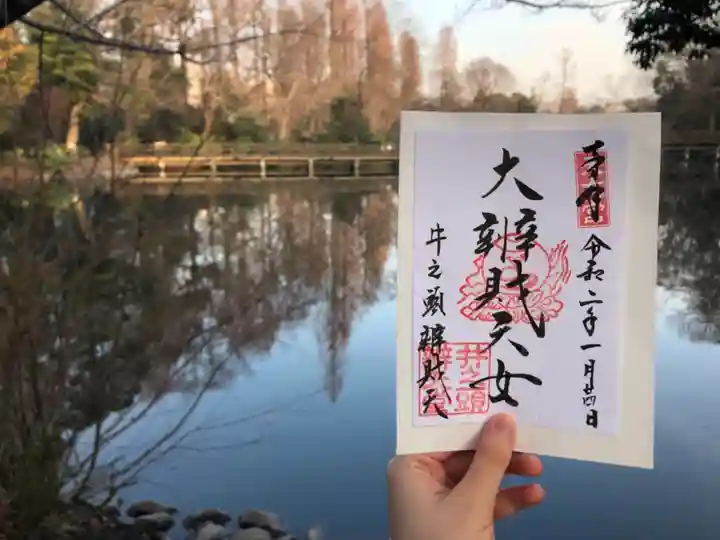 奉拝
令和二年一月廿四日
大辨財天女
井之頭辨財天
井之頭